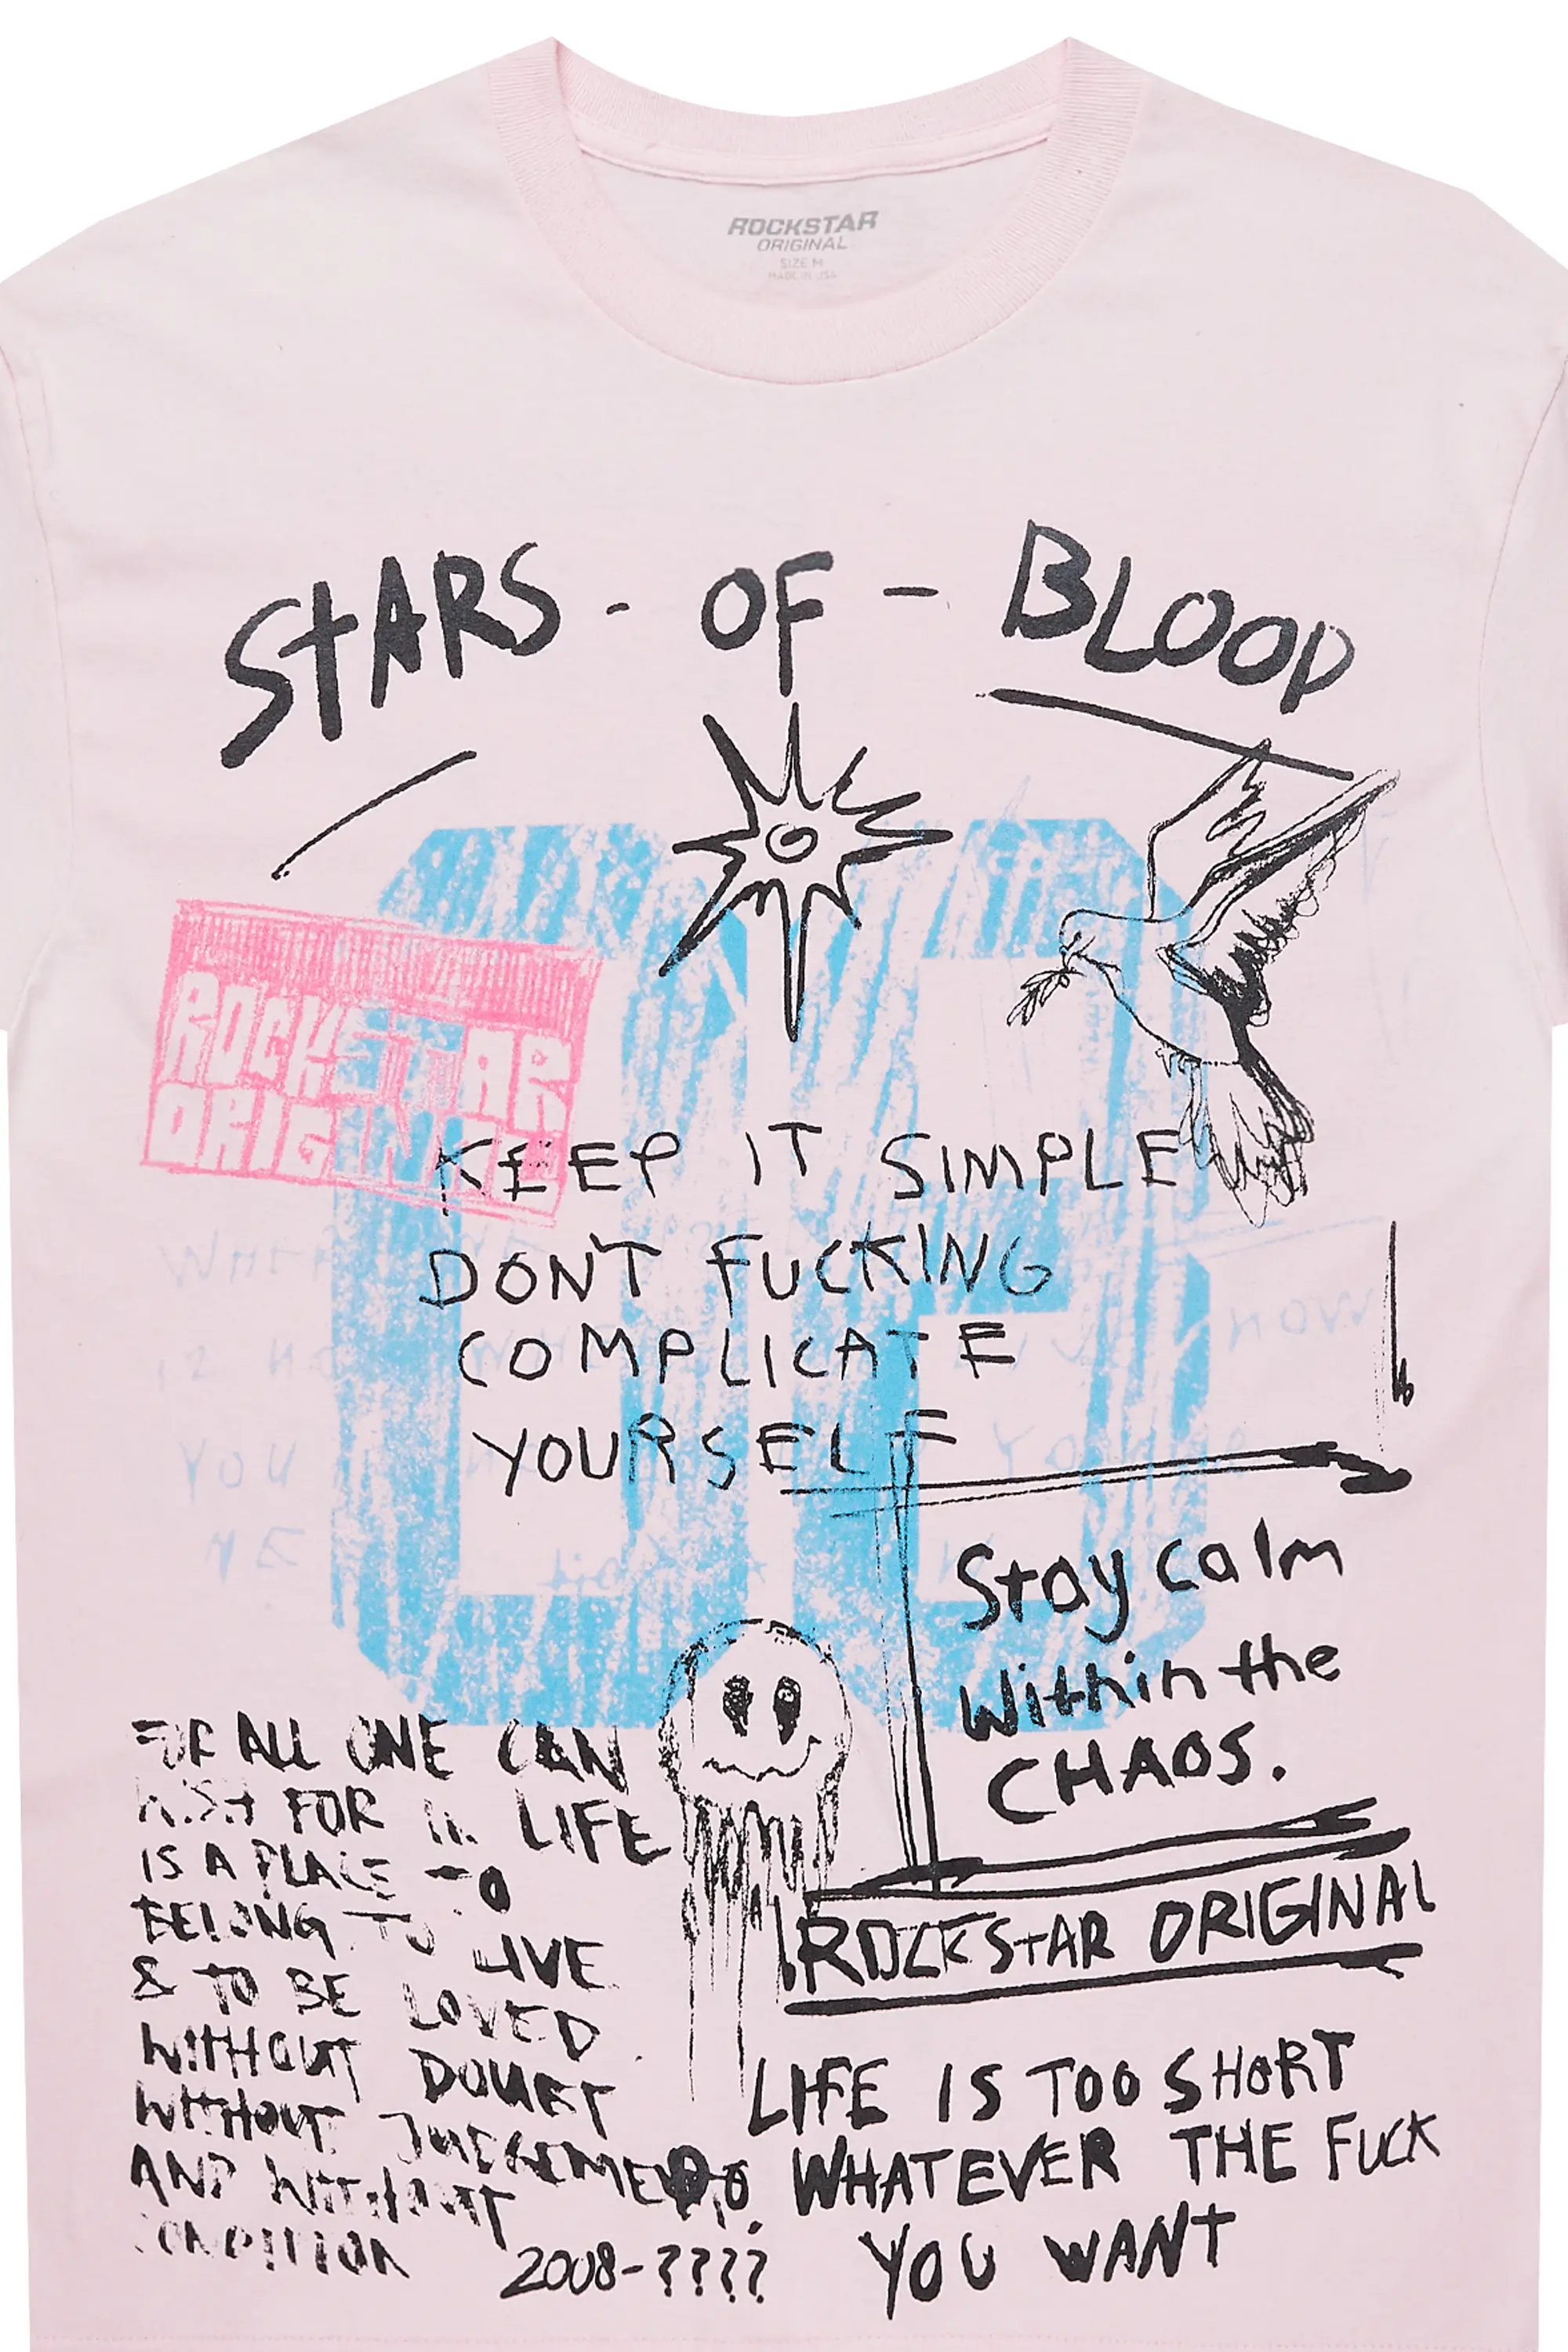 ROCKSTAR
ORIGINAL
SIZE M
MADE IN USA
STARS - OF - BLOOD
ROCKSTAR
ORIGINAL
KEEP IT SIMPLE
DON'T FUCKING
COMPLICATE
YOURSELF
Stay calm
Within the
CHAOS.
ROCKSTAR ORIGINAL
FOR ALL ONE CAN
WISH FOR IN LIFE
IS A PLACE TO
BELONG TO LIVE
& TO BE LOVED
WITHOUT DOUBT
WITHOUT JUDGEMENT
AND WITHOUT
CONDITION
2008-????
LIFE IS TOO SHORT
DO WHATEVER THE FUCK
YOU WANT